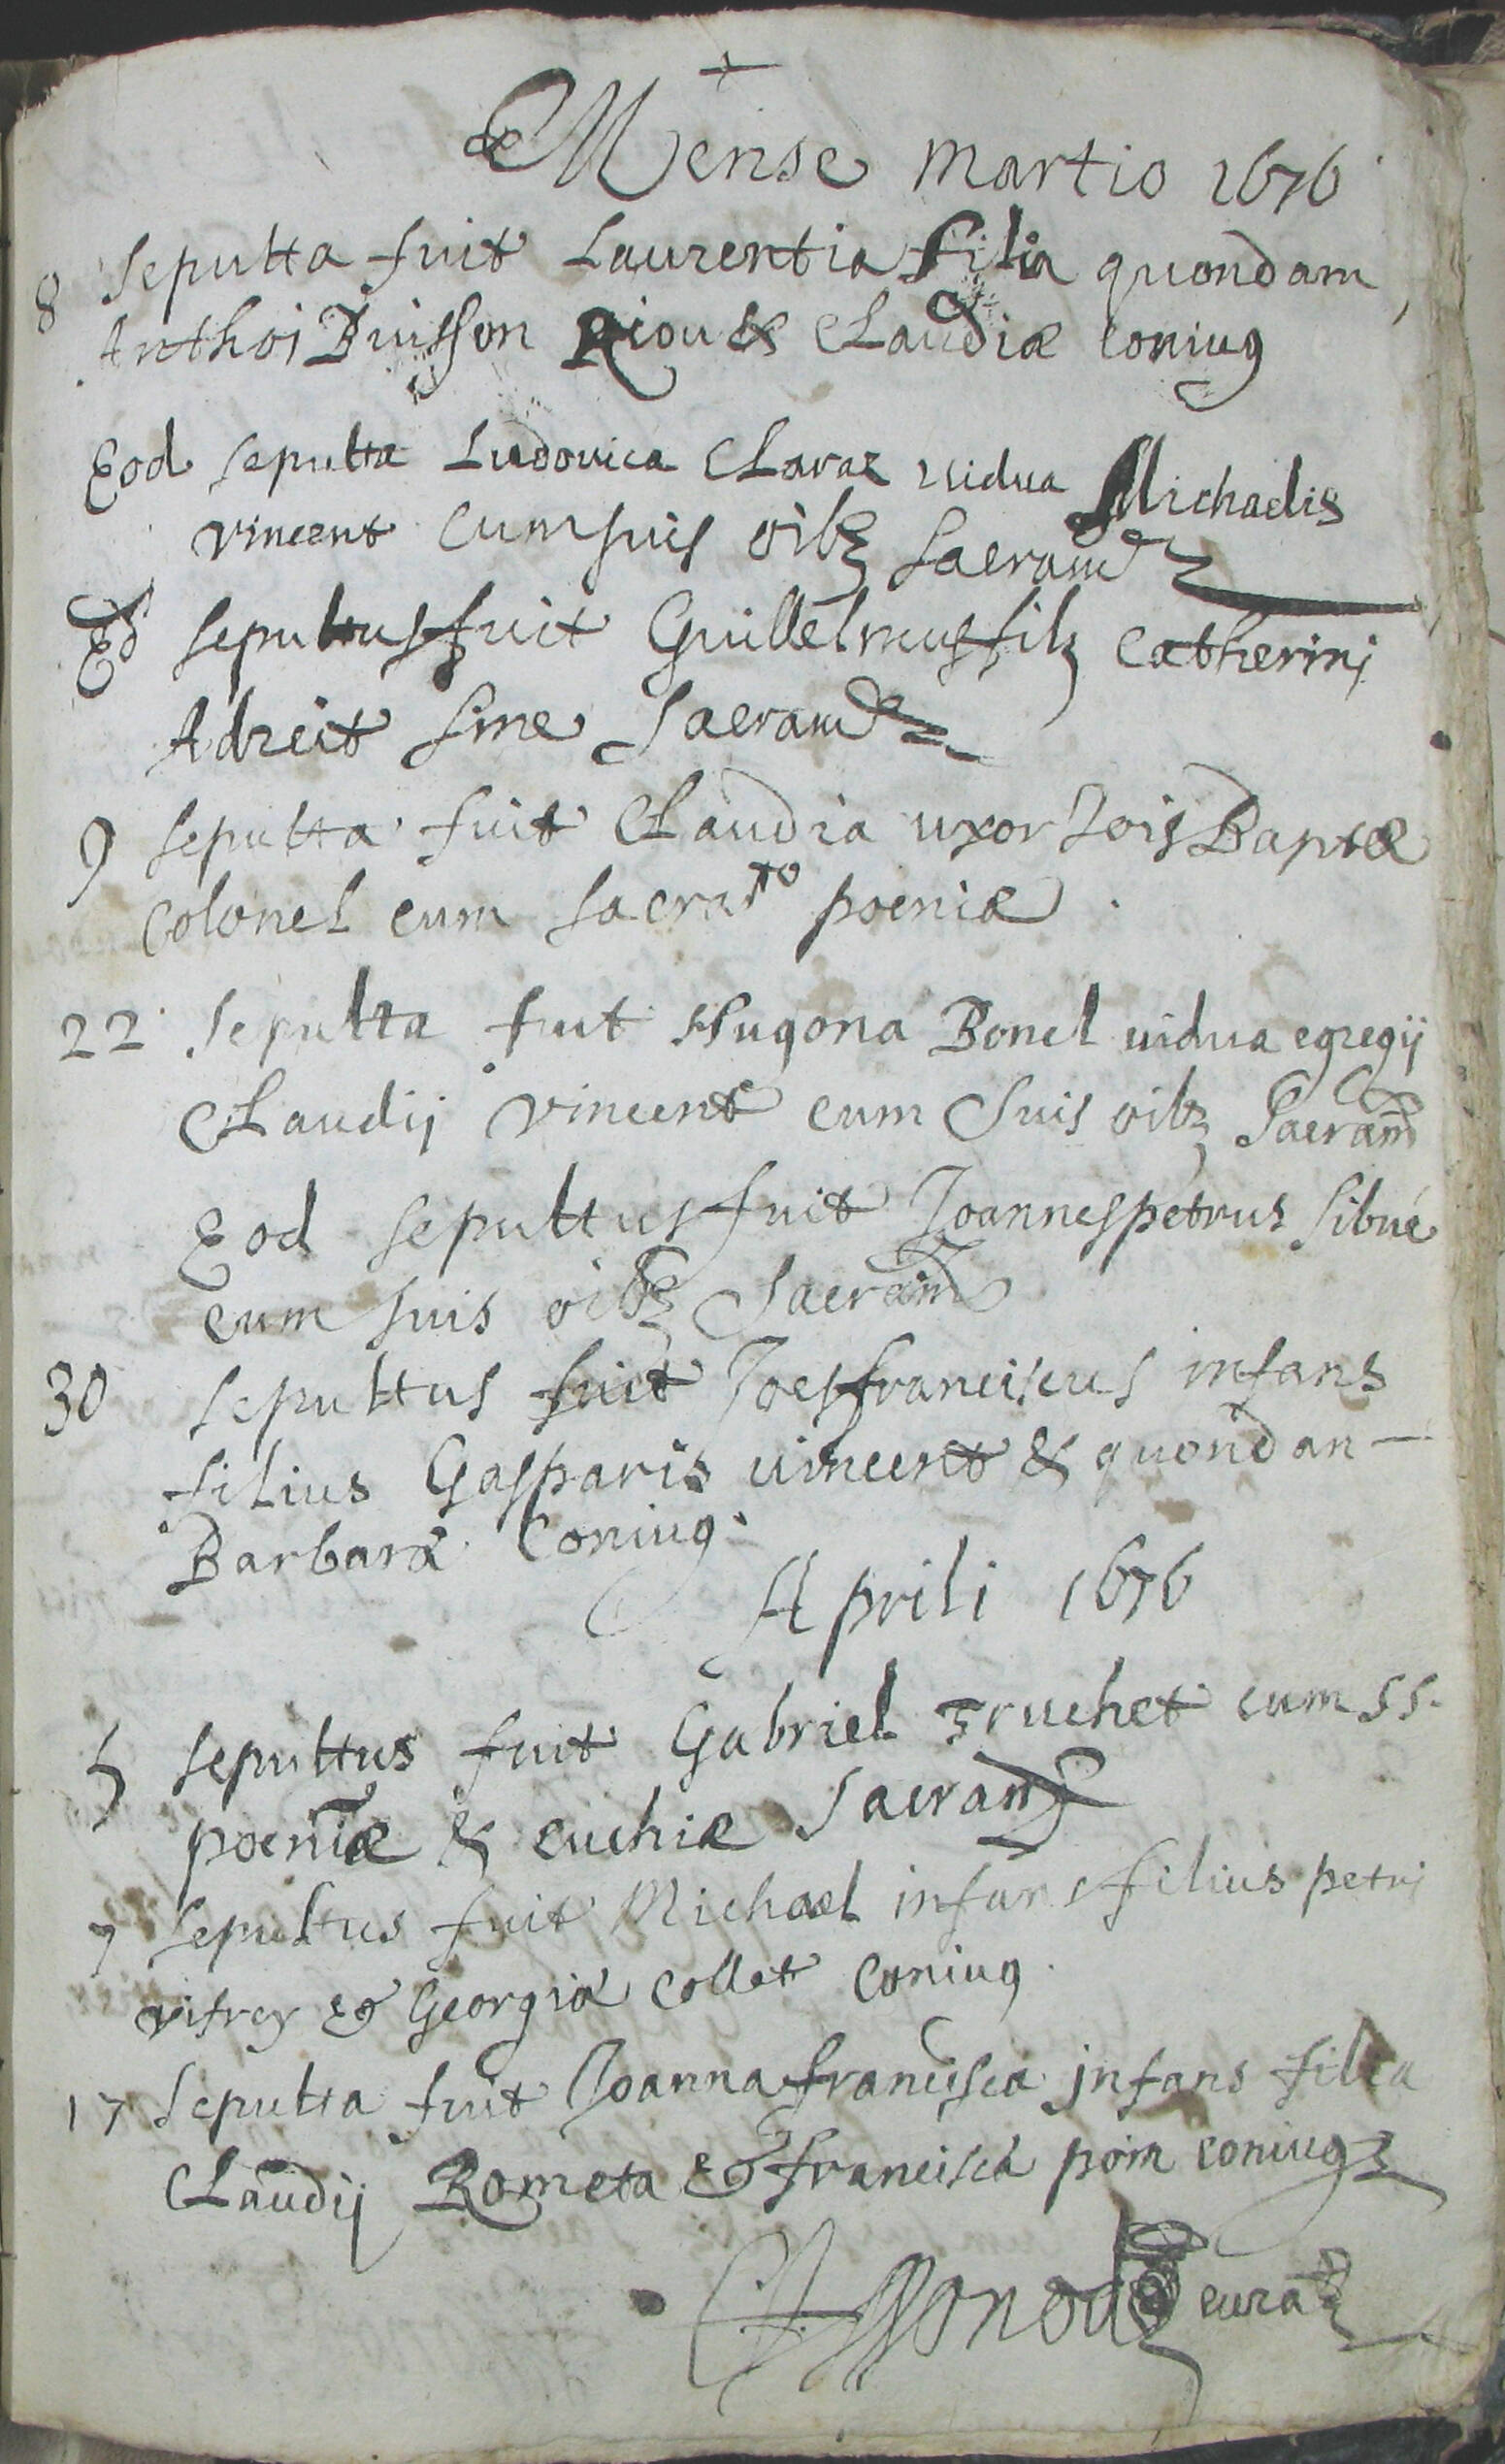 +
Mense martio 1676
8 sepulta fuit Laurentia filia quondam
Anthoj Buisson Riou & Claudiæ coniug
Eod sepulta Ludovica Claraz vidua Michaelis
vincent cum suis oibz sacram
Eod sepultus fuit Guillelmus filz Catherinj
Adreit sine sacram
9 sepulta fuit Claudia uxor Jois Baptæ
colonel cum sacrato poeniæ
22 sepulta fuit Hugona Bonel uidua egregij
Claudij vincent cum suis oibz Sacram
Eod sepultus fuit Joannes petrus sibué
cum suis oibz Sacram
30 sepultus fuit Joes franciscus infans
filius Gasparis uincent & quondan -
Barbaræ Coniug.
Aprili 1676
5 sepultus fuit Gabriel truchet cum ss.
poeniæ & euchiæ Sacram
7 sepultus fuit Michael infans filius petrj
vifrey & Georgiæ collet coniug.
17 sepulta fuit Joanna francisca jnfans filia
Claudij Rometa & franciscæ poin coniug
curat